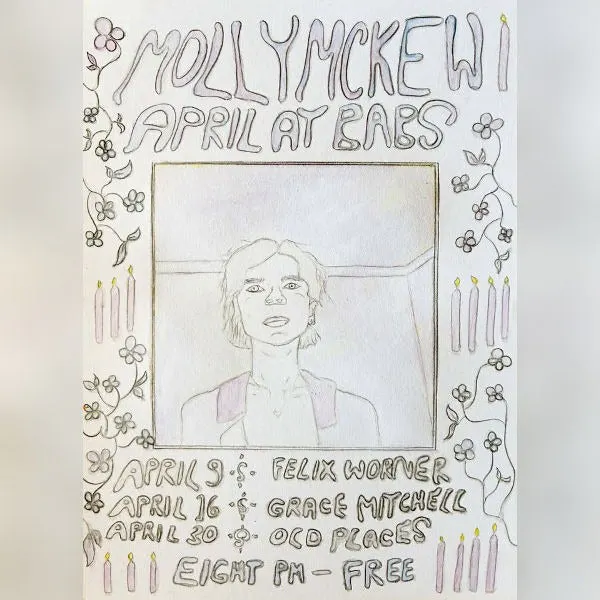 MOLLY MCKEW
APRIL AT BABS
APRIL 9 FELIX WORNER
APRIL 16 GRACE MITCHELL
APRIL 30 OLD PLACES
EIGHT PM – FREE